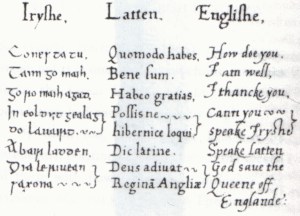 Iryshe, Latten. Englishe,
Coneſtatu, Quomodo habes, How doe you,
Taim go maih, Bene sum. I am well,
Go ro maih agad, Habeo gratias, I thancke you,
In eolder gealag Possisne hibernice loqui, Cann you
do labairt, hibernice loqui, speake Iryshe
Abair laden, Dic latine. Speake Latten
Dia le riuean Deus adiuvat God save the
Reginã Angliæ Queene off
Englande.